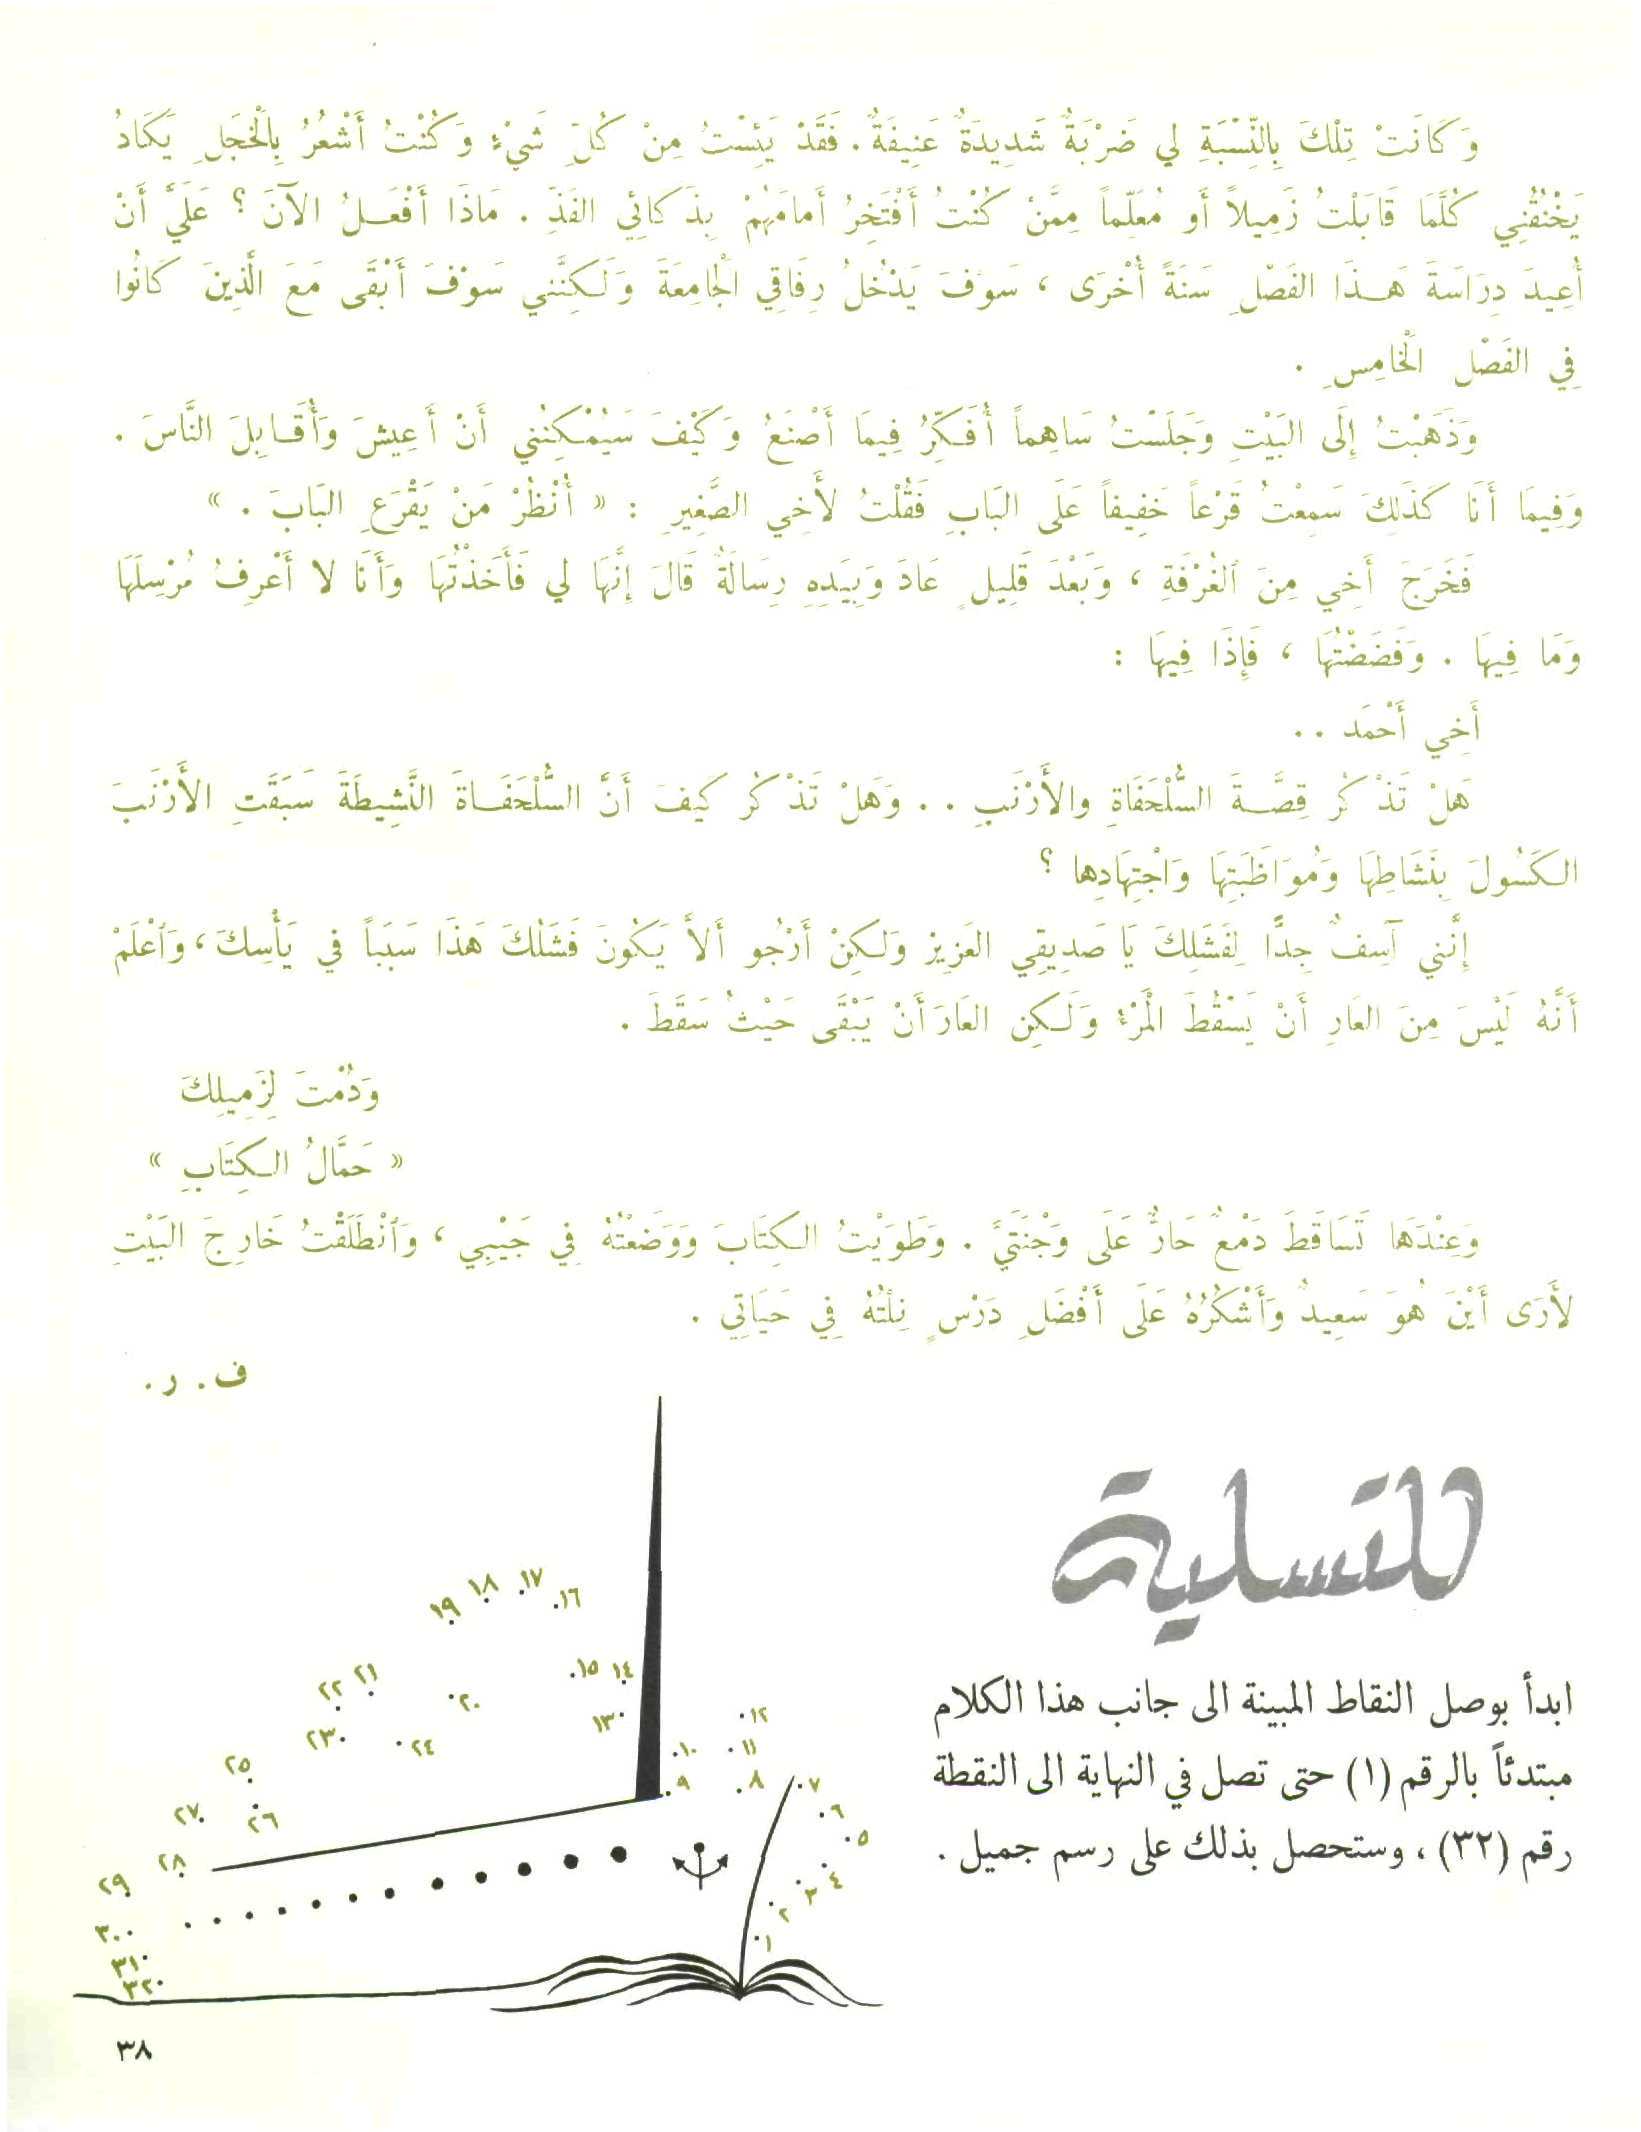 وَكَانَتْ تِلْكَ بِالنِّسْبَةِ لي ضَرْبَةٌ شَدِيدَةٌ عَنِيفَةٌ. فَقَدْ يَئِسْتُ مِنْ كُلِّ شَيْءٍ وَكُنْتُ أَشْعُرُ بِالْخَجَلِ يَكَادُ
يَخْنُقُنِي كُلَّمَا قَابَلْتُ زَمِيلاً أَو مُعَلِّماً مِمَّنْ كُنْتُ أَفْتَخِرُ أَمامَهُمْ بِذَكائِي الفَذِّ . مَاذَا أَفْعَلُ الآنَ ؟ عَلَيَّ أَنْ
أُعِيدَ دِرَاسَةَ هَذَا الفَصْلِ سَنَةً أُخْرَى ، سَوْفَ يَدْخُلُ رِفَاقِي الْجَامِعَةَ وَلَكِنَّنِي سَوْفَ أَبْقَى مَعَ الَّذِينَ كَانُوا
فِي الفَصْلِ الْخامِسِ .
وَذَهَبْتُ إِلَى البَيْتِ وَجَلَسْتُ سَاهِماً أُفَكِّرُ فِيمَا أَصْنَعُ وَكَيْفَ سَيُمْكِنُنِي أَنْ أَعِيشَ وَأُقَابِلَ النَّاسَ .
وَفِيمَا أَنَا كَذَلِكَ سَمِعْتُ قَرْعاً خَفِيفاً عَلَى البَابِ فَقُلْتُ لأَخِي الصَّغِيرِ : « أُنْظُرْ مَنْ يَقْرَعِ البَابَ . »
فَخَرَجَ أَخِي مِنَ ٱلغُرْفَةِ ، وَبَعْدَ قَلِيلٍ عَادَ وَبِيَدِهِ رِسَالَةٌ قَالَ إِنَّهَا لي فَأَخَذْتُهَا وَأَنَا لا أَعْرِفُ مُرْسِلَهَا
وَمَا فِيهَا . وَفَضَضْتُهَا ، فَإِذَا فِيهَا :
أَخِي أَحْمَد ..
هَلْ تَذْكُرُ قِصَّةَ السُّلْحَفَاةِ والأَرْنَبِ .. وَهَلْ تَذْكُر كيفَ أَنَّ السُّلْحَفَاةَ النَّشِيطَةَ سَبَقَتِ الأَرْنَبَ
الكَسُولَ بِنَشَاطِهَا وَمُوَاظَبَتِهَا وَاجْتِهَادِها ؟
إِنَّنِي آسِفٌ جِدًّا لِفَشَلِكَ يَا صَدِيقِي العَزِيز وَلَكِنْ أَرْجُو أَلاَّ يَكُونَ فَشَلُكَ هَذَا سَبَباً في يَأْسِكَ ، وَٱعْلَمْ
أَنَّهُ لَيْسَ مِنَ العَارِ أَنْ يَسْقُطَ الْمَرْءُ وَلَكِنِ العَارَ أَنْ يَبْقَى حَيْثُ سَقَطَ .
وَدُمْتَ لِزَمِيلِكَ
« حَمَّالُ الكِتَابِ »
وَعِنْدَهَا تَسَاقَطَ دَمْعٌ حَارٌّ عَلَى وَجْنَتَيَّ . وَطَوَيْتُ الكِتَابَ وَوَضَعْتُهُ فِي جَيْبِي ، وَٱنْطَلَقْتُ خَارِجَ البَيْتِ
لأَرَى أَيْنَ هُوَ سَعِيدٌ وَأَشْكُرُهُ عَلَى أَفْضَلِ دَرْسٍ نِلْتُهُ فِي حَيَاتِي .
ف . ر .
للتسلية
ابدأ بوصل النقاط المبينة الى جانب هذا الكلام
مبتدئاً بالرقم (١) حتى تصل في النهاية الى النقطة
رقم (٣٢) ، وستحصل بذلك على رسم جميل .
١
٢
٣
٤
٥
٦
٧
٨
٩
١٠
١١
١٢
١٣
١٤
١٥
١٦
١٧
١٨
١٩
٢٠
٢١
٢٢
٢٣
٢٤
٢٥
٢٦
٢٧
٢٨
٢٩
٣٠
٣١
٣٢
٣٨